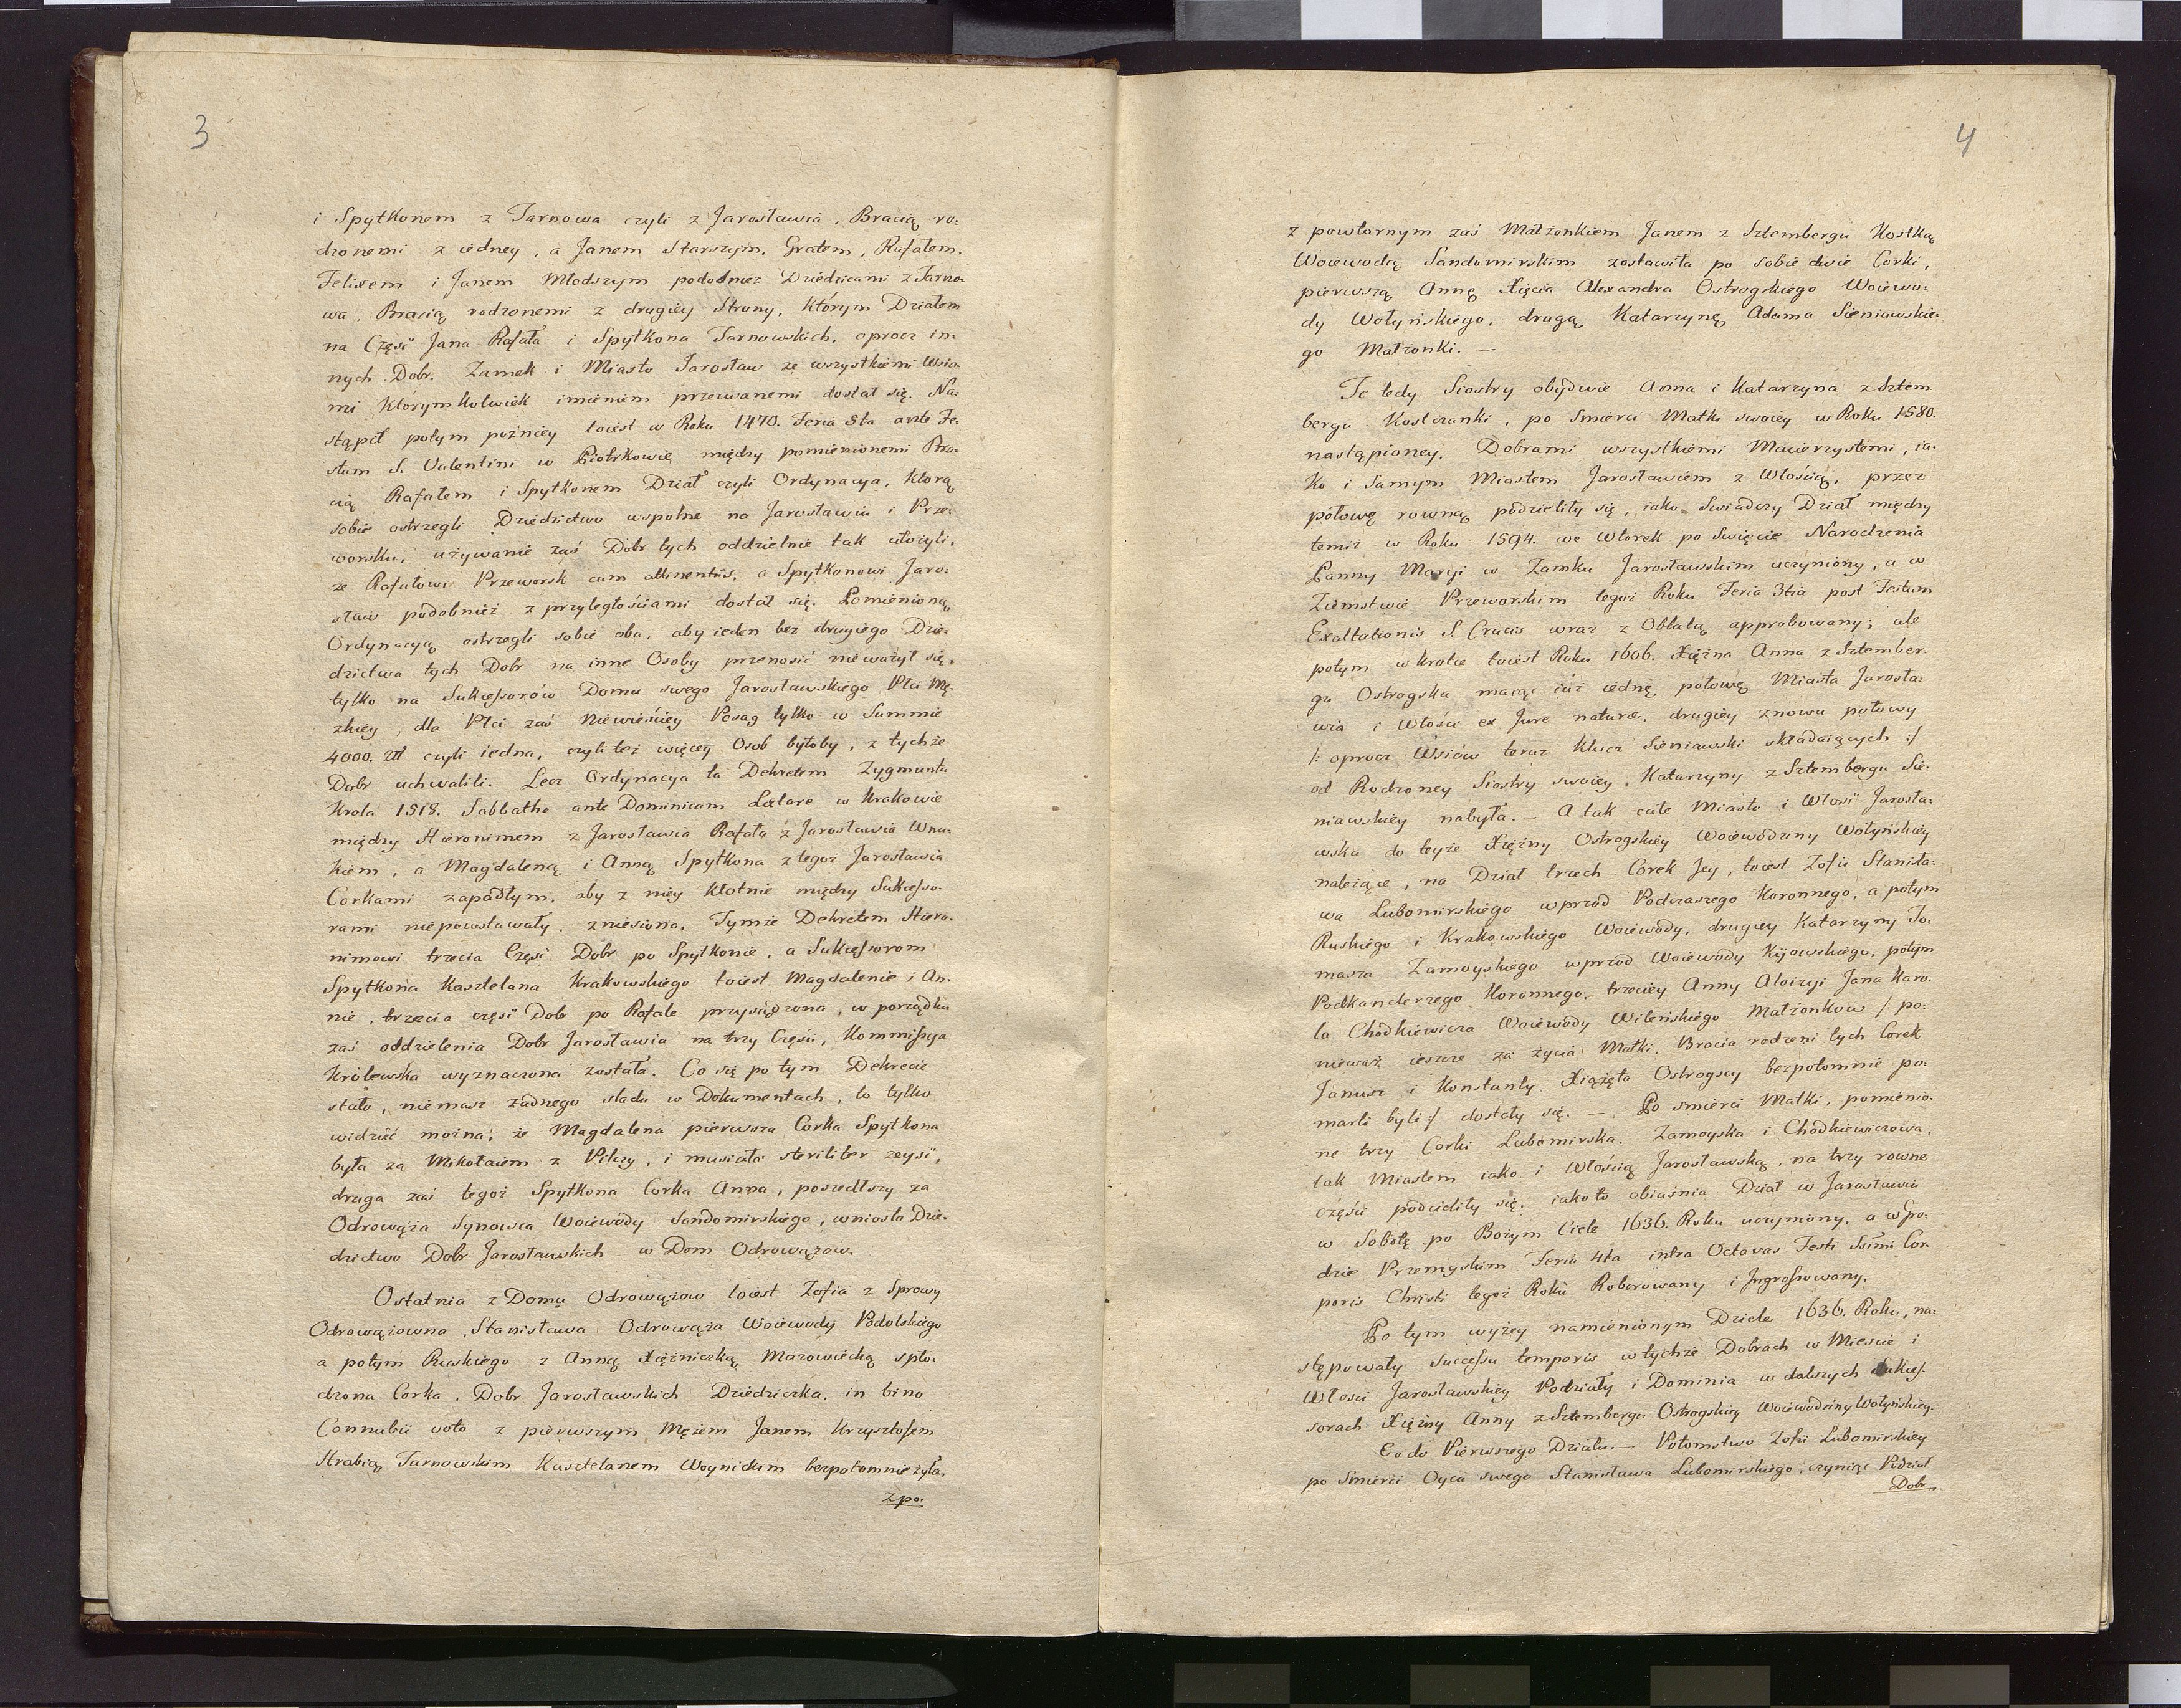 3
i Spytkonem z Tarnowa czyli z Jarosławia, Bracią ro:
dzonemi z iedney, a Janem Starszym, Gratem, Rafałem.
Felixem i Janem Młodszym podobnież Dziedzicami z Tarno:
wa, Bracią rodzonemi z drugiey Strony, którym Działem
na Część Jana Rafała i Spytkona Tarnowskich, oprocz in:
nych Dobr. Zamek i Miasto Jarosław ze wszystkiemi Wsia:
mi którymkolwiek imieniem przezwanemi dostał się. Na:
stąpił potym poźniey toiest w Roku 1470. Feria 5ta ante Fe:
stum S. Valentini w Piotrkowie między pomienionemi Bra:
cią Rafałem i Spytkonem Dział czyli Ordynacya, ktorą
sobie ostrzegli Dziedzictwo wspolne na Jarosławiu i Prze:
worsku, używanie zaś Dobr tych oddzielnie tak ułożyli,
że Rafałowi Przeworsk cum attinentiis, a Spytkonowi Jaro:
sław podobnież z przyległościami dostał się. Pomienioną
Ordynacyą ostrzegli sobie oba, aby ieden bez drugiego Dzie:
dzictwa tych Dobr na inne Osoby przenosić nie ważył się,
tylko na Sukcessorów Domu swego Jarosławskiego Płci Mę:
zkiey, dla Płci zaś Niewieściey Posag tylko w Summie
4000. Zł czyli iedna, czyli też więcey Osob byłoby, z tychże
Dobr uchwalili. Lecz Ordynacya ta Dekretem Zygmunta
Krola 1518. Sabbatho ante Dominicam Lætare w Krakowie
między Hieronimem z Jarosławia Rafała z Jarosławia Wnu:
kiem, a Magdaleną i Anną Spytkona z tegoż Jarosławia
Corkami zapadłym, aby z niey kłotnie między Sukcesso:
rami niepowstawały, zniesiona. Tymże Dekretem Hiero:
nimowi trzecia Część Dobr po Spytkonie, a Sukcessorom
Spytkona Kasztelana Krakowskiego toiest Magdalenie i An:
nie, trzecia część Dobr po Rafale przysądzona, w porządku
zaś oddzielenia Dobr Jarosławia na trzy Części, Kommissya
Królewska wyznaczona została. Co się po tym Dekrecie
stało, niemasz żadnego sladu w Dokumentach, to tylko
widzieć można, że Magdalena pierwsza Corka Spytkona
była za Mikołaiem z Pilczy, i musiała steriliter zeyść,
druga zaś tegoż Spytkona Corka Anna, poszedłszy za
Odrowąża Synowca Woiewody Sandomirskiego, wniosła Dzie:
dzictwo Dobr Jarosławskich w Dom Odrowążow.
Ostatnia z Domu Odrowążow toiest Zofia z Sprowy
Odrowążowna, Stanisława Odrowąża Woiewody Podolskiego
a potym Ruskiego z Anną Xiężniczką Mazowiecką spło:
dzona Corka, Dobr Jarosławskich Dziedziczka, in bino
Connubii voto z pierwszym Mężem Janem Krzysztofem
Hrabią Tarnowskim Kasztelanem Woynickim bezpotomnie żyła,
z po:
4
z powtornym zaś Małżonkiem Janem z Sztembergu Kostką
Woiewodą Sandomirskim zostawiła po sobie dwie Corki,
pierwszą Annę Xięcia Alexandra Ostrogskiego Woiewo:
dy Wołyńskiego, drugą Katarzynę Adama Sieniawskie:
go Małżonki. —
Te tedy Siostry obydwie Anna i Katarzyna z Sztem
bergu Kostczanki, po Smierci Matki swoiey w Roku 1580.
nastąpioney, Dobrami wszystkiemi Macierzystemi, ia:
ko i Samym Miastem Jarosławiem z Włością, przez
połowę rowną podzieliły się, iako Swiadczy Dział między
temiż w Roku 1594. we Wtorek po Swięcie Narodzenia
Panny Maryi w Zamku Jarosławskim uczyniony, a w
Ziemstwie Przeworskim tegoż Roku Feria 3tia post Festum
Exaltationis S. Crucis wraz z Oblatą approbowany; ale
potym wkrotce toiest Roku 1606. Xiężna Anna z Sztember:
gu Ostrogska maiąc iuż iednę połowę Miasta Jarosła:
wia i Włości ex Jure naturæ, drugiey znowu połowy
/: oprocz Wsiów teraz Klucz Sieniawski składaiących :/
od Rodzoney Siostry swoiey, Katarzyny z Sztembergu Sie:
niawskiey nabyła. — A tak całe Miasto i Włość Jarosła:
wska do teyże Xiężny Ostrogskiey Woiewodziny Wołyńskiey
należące, na Dział trzech Corek Jey, toiest Zofii Stanisła:
wa Lubomirskiego wprzod Podczaszego Koronnego, a potym
Ruskiego i Krakowskiego Woiewody, drugiey Katarzyny To:
masza Zamoyskiego wprzod Woiewody Kijowskiego, potym
Podkanclerzego Koronnego, trzeciey Anny Aloizyi Jana Karo:
la Chodkiewicza Woiewody Wileńskiego Małżonkow /: po:
nieważ ieszcze za życia Matki, Bracia rodzeni tych Corek
Janusz i Konstanty Xiążęta Ostrogscy bezpotomnie po:
marli byli :/ dostały się. — Po smierci Matki, pomienio:
ne trzy Corki Lubomirska, Zamoyska i Chodkiewiczowa,
tak Miastem iako i Włością Jarosławską, na trzy rowne
części podzieliły się, iako to obiaśnia Dział w Jarosławiu
w Sobotę po Bożym Ciele 1636. Roku uczyniony, a w Gro:
dzie Przemyskim Feria 4ta intra Octavas Festi Ssimi Cor:
poris Christi tegoż Roku Roborowany i Jngrossowany.
Po tym wyżey namienionym Dziele 1636. Roku, na:
stępowały successu temporis w tychże Dobrach w Mieście i
Włości Jarosławskiey Podziały i Dominia w dalszych Sukces:
sorach Xiężny Anny z Sztembergu Ostrogskiey Woiewodziny Wołyńskiey.
Co do Pierwszego Działu. — Potomstwo Zofii Lubomirskiey
po Smierci Oyca swego Stanisława Lubomirskiego, czyniąc Podział
Dobr